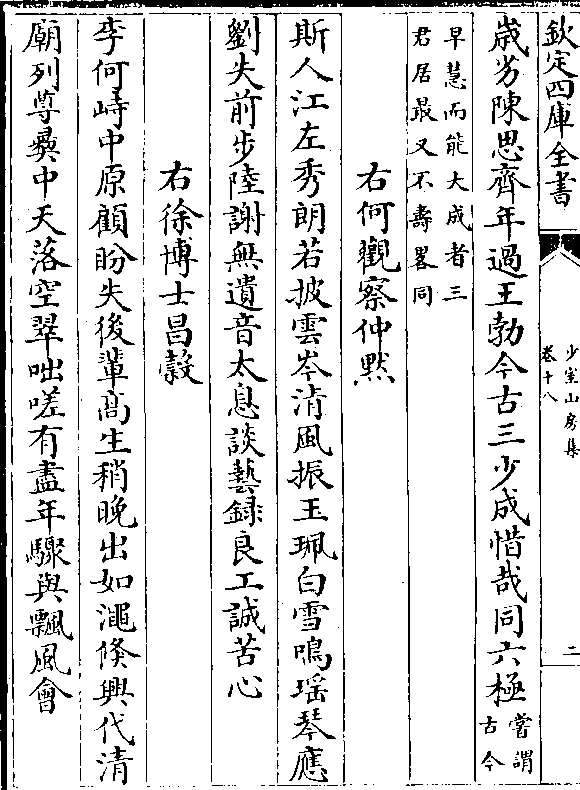 欽定四庫全書
少室山房集
卷十八
二
歲劣陳思齊年過王勃今古三少成惜哉同六極嘗謂古今
早慧而能大成者三
君居最又不壽畧同
右何觀察仲黙
斯人江左秀朗若披雲岑清風振玉珮白雪鳴瑶琴應
劉失前步陸謝無遺音太息談藝録良工誠苦心
右徐博士昌榖
李何峙中原顧盼失後輩髙生稍晚出如澠倐興代清
廟列尊彛中天落空翠咄嗟有盡年驟與飄風會